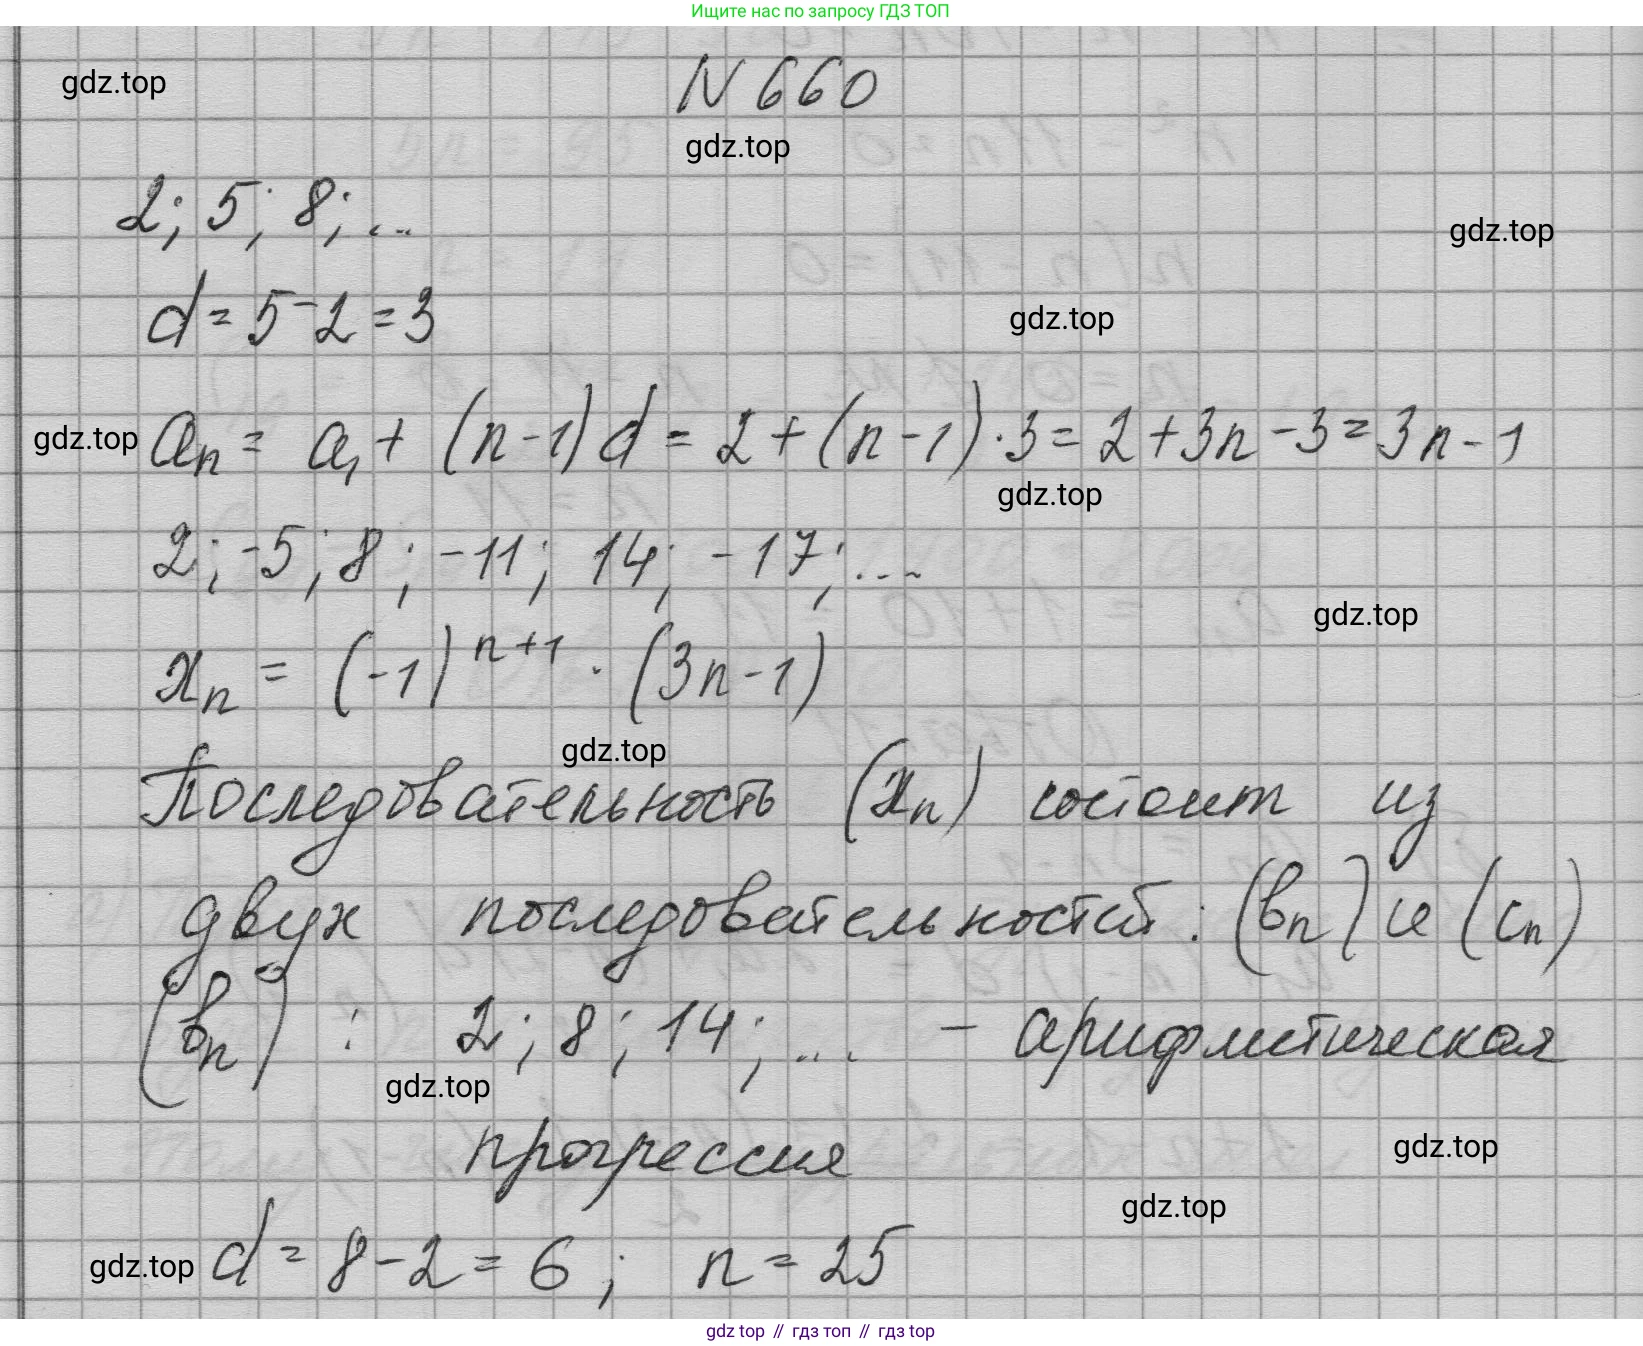 Ищите нас по запросу ГДЗ ТОП
gdz.top
N 660
gdz.top
2; 5; 8; ...
gdz.top
d = 5 - 2 = 3
gdz.top
gdz.top
aₙ = a₁ + (n-1) d = 2 + (n-1) · 3 = 2 + 3n - 3 = 3n - 1
gdz.top
2; -5; 8; -11; 14; -17; ...
gdz.top
xₙ = (-1)ⁿ⁺¹ · (3n-1)
gdz.top
Последовательность (xₙ) состоит из
двух последовательностей: (bₙ) и (cₙ)
(bₙ) : 2; 8; 14; ... — арифметическая
gdz.top
прогрессия
gdz.top
gdz.top
gdz.top
d = 8 - 2 = 6 ; n = 25
gdz top // гдз топ // гдз top